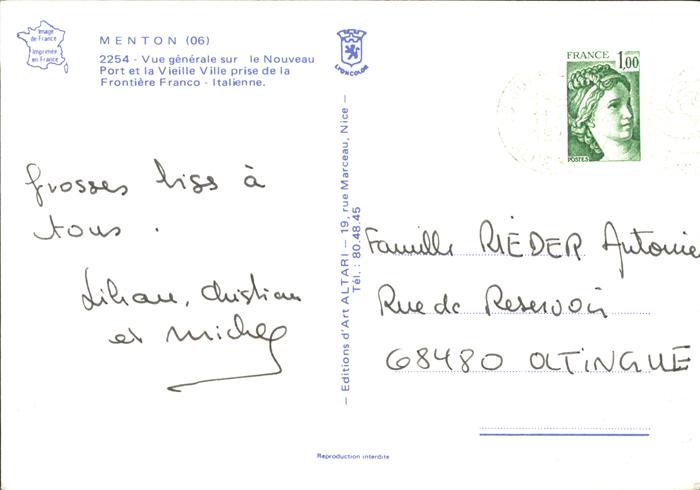 Image
de France
Imprimée
en France
MENTON (06)
2254 - Vue générale sur le Nouveau
Port et la Vieille Ville prise de la
Frontière Franco - Italienne.
LYONCOLOR
FRANCE
1,00
POSTES
Grosses biss à
tous .
Lilian, Christian
et Michel
— Editions d'Art ALTARI — 19, rue Marceau, Nice —
Tél. : 80.48.45
Famille RIEDER Antoine
Rue de Reservoir
68480 OLTINGUE
Reproduction interdite